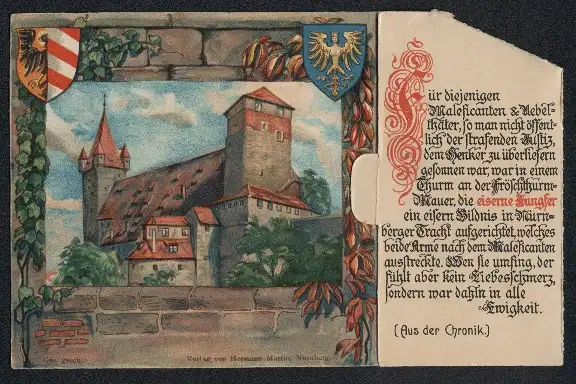 Für diejenigen
Maleficanten & Uebel-
thäter, so man nicht öffent-
lich der strafenden Justiz,
dem Henker zu überliefern
gesonnen war, war in einem
Thurm an der Fröschthurm-
Mauer, die eiserne Jungfer
ein eisern Bildnis in Nürn-
berger Tracht aufgerichtet, welches
beide Arme nach dem Maleficanten
ausstreckte. Wen sie umfing, der
fühlt aber kein Liebesschmerz,
sondern war dahin in alle
Ewigkeit.
(Aus der Chronik.)
Ges. gesch.
Verlag von Hermann Martin, Nürnberg.